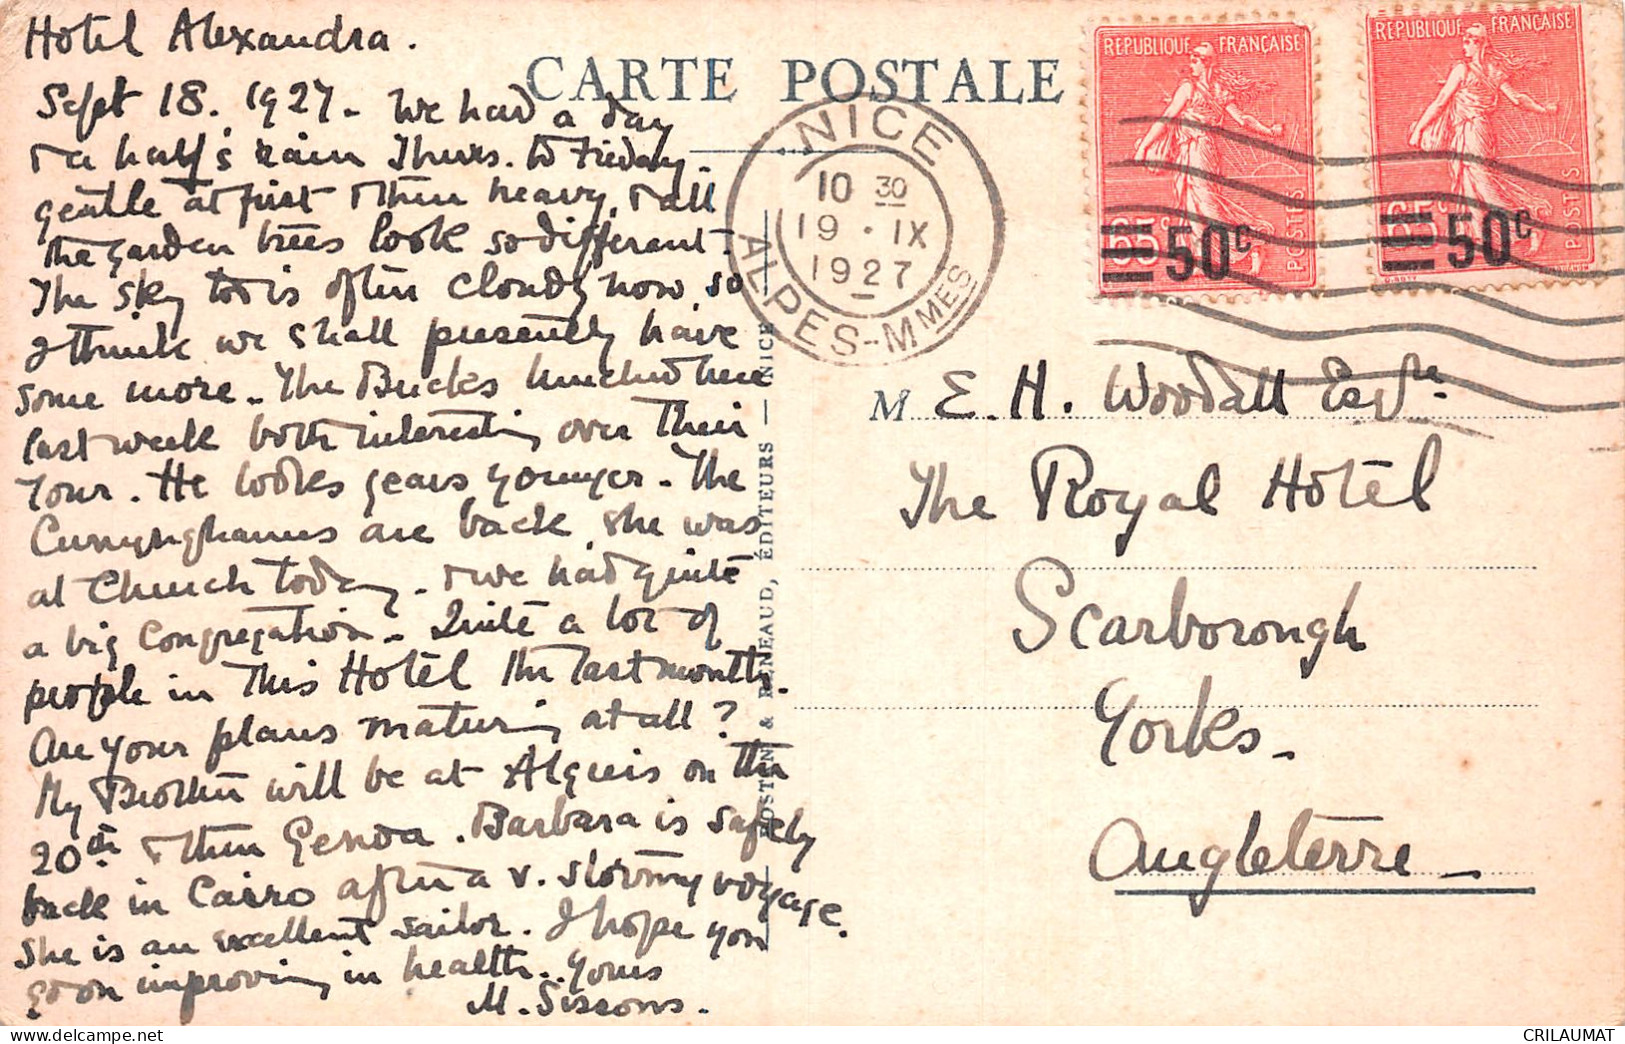 Hotel Alexandra.
Sept 18. 1927 - We had a day
& a half's rain Thurs. to Friday.
gentle at first & then heavy, & all
the garden trees look so different.
The sky too is often cloudy now, so
I think we shall presently have
some more - The Bucks lunched here
last week both interesting over their
Tour. He looks years younger - The
Cunynghames are back, she was
at Church today - & we had quite
a big Congregation - Quite a lot of
people in this Hotel the last month.
Are your plans maturing at all?
My Brother will be at Algiers on the
20th & then Genoa. Barbara is safely
back in Cairo after a v. stormy voyage.
She is an excellent sailor. I hope you
go on improving in health. Yours
M. Sissons.
CARTE POSTALE
ROSTAN & MUNEAUD, ÉDITEURS — NICE
NICE
10 30
19 · IX
1927
ALPES-MMES
REPUBLIQUE FRANÇAISE
65c
50c
POSTES
REPUBLIQUE FRANÇAISE
65c
50c
POSTES
M E. H. Woodall Esqre
The Royal Hotel
Scarborough
Yorks -
Angleterre -
CRILAUMAT